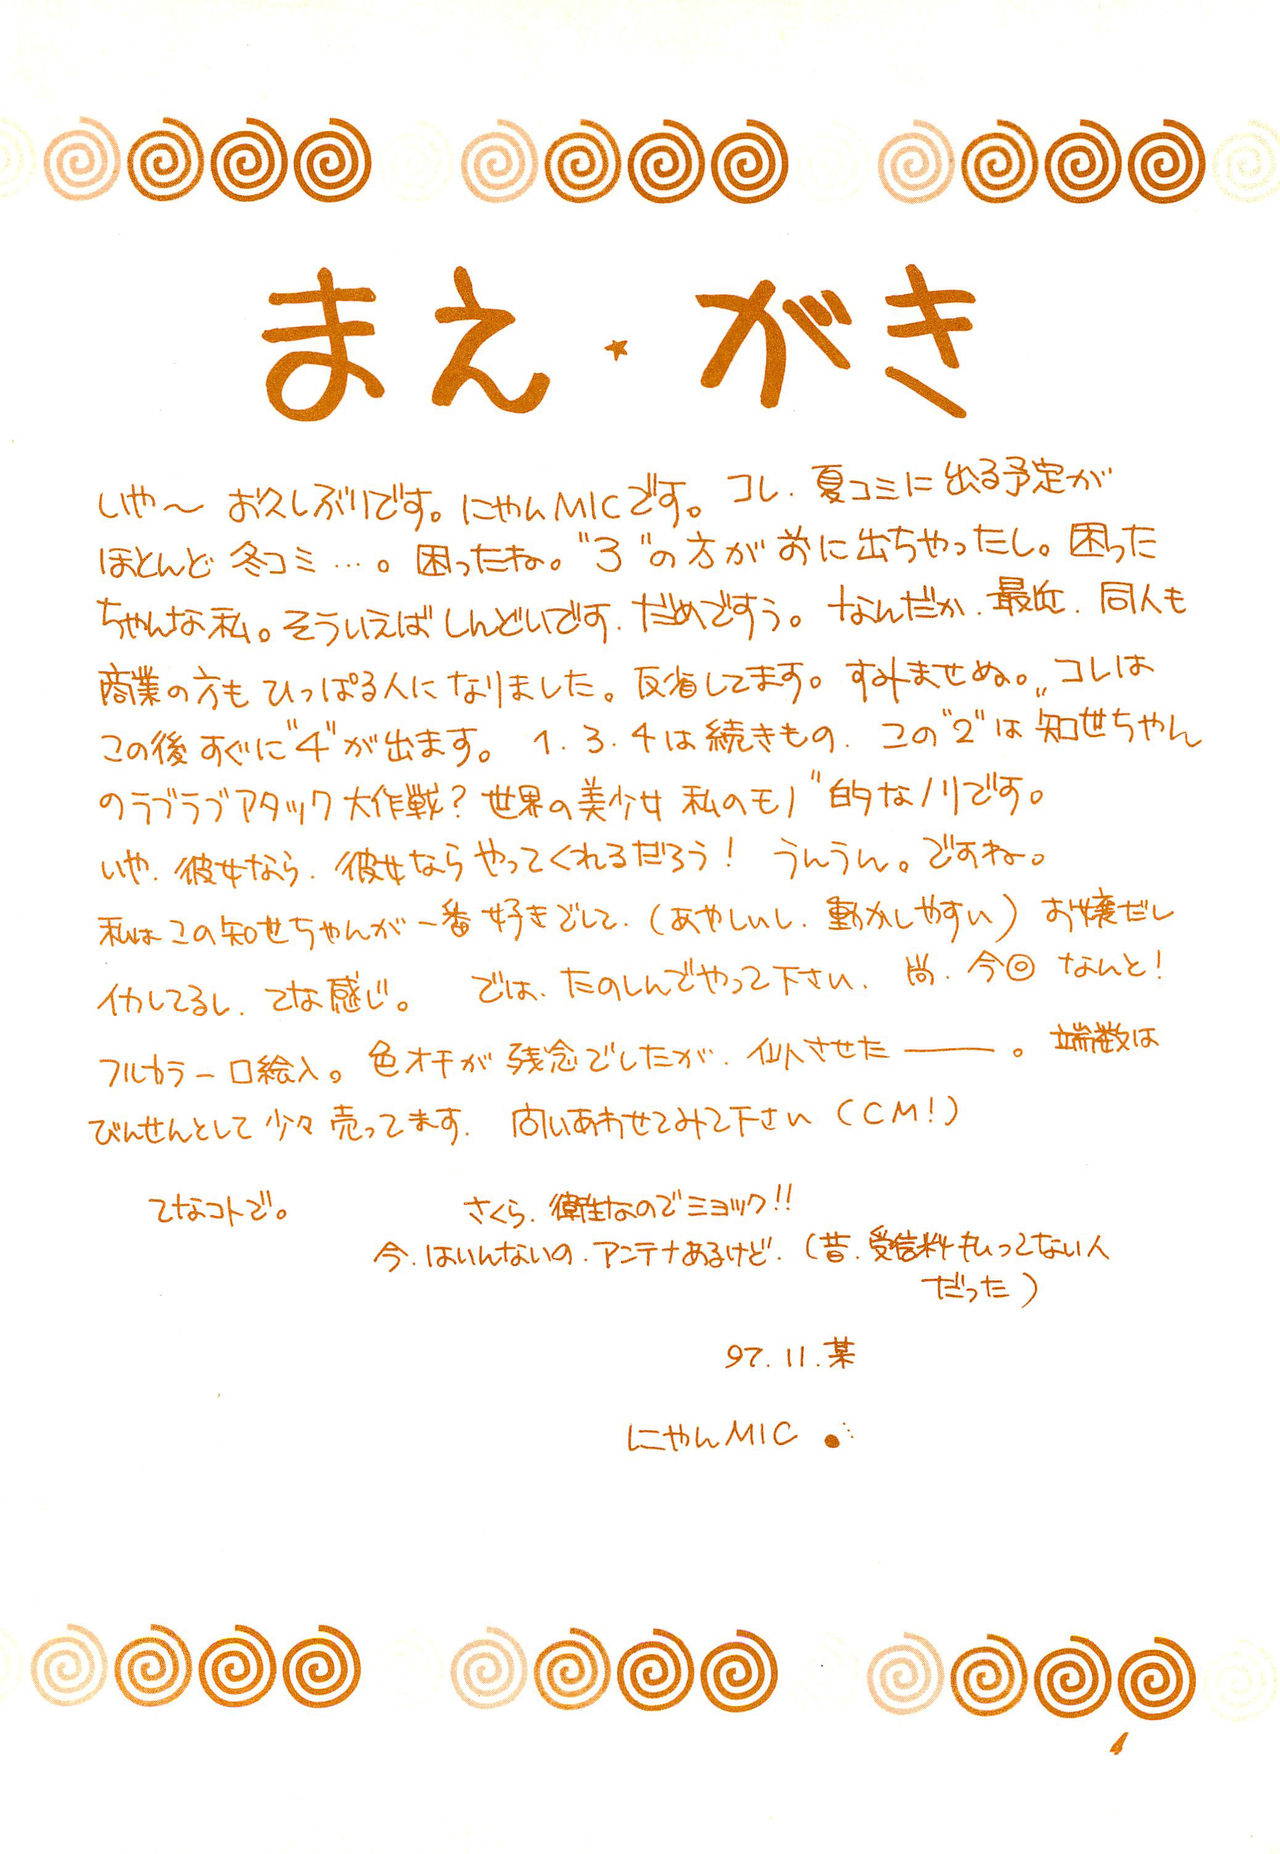 まえ☆がき
いや〜お久しぶりです。にゃんMICです。コレ、夏コミに出る予定が
ほとんど冬コミ…。困ったね。"3"の方が前に出ちゃったし。困った
ちゃんな私。そういえばしんどいです、だめですぅ。なんだか、最近、同人も
商業の方もひっぱる人になりました。反省してます。すみませぬ。コレは
この後すぐに"4"が出ます。1.3.4は続きもの、この"2"は"知世ちゃん
のラブラブアタック大作戦?世界の美少女私のモノ"的なノリです。
いや、彼女なら、彼女ならやってくれるだろう!うんうん。ですね。
私はこの知世ちゃんが一番好きでして、(あやしいし、動かしやすい)お嬢だし
イカしてるし、てな感じ。では、たのしんでやって下さい、尚、今回なんと!
フルカラー口絵入。色オチが残念でしたが、仙人させた――。端数は
びんせんとして少々売ってます、問いあわせてみて下さい(CM!)
てなコトで。
さくら、衛生なのでミョック!!
今、はいんないの、アンテナあるけど、(昔、受信料もいってない人
だった)
97.11.某
にゃんMIC